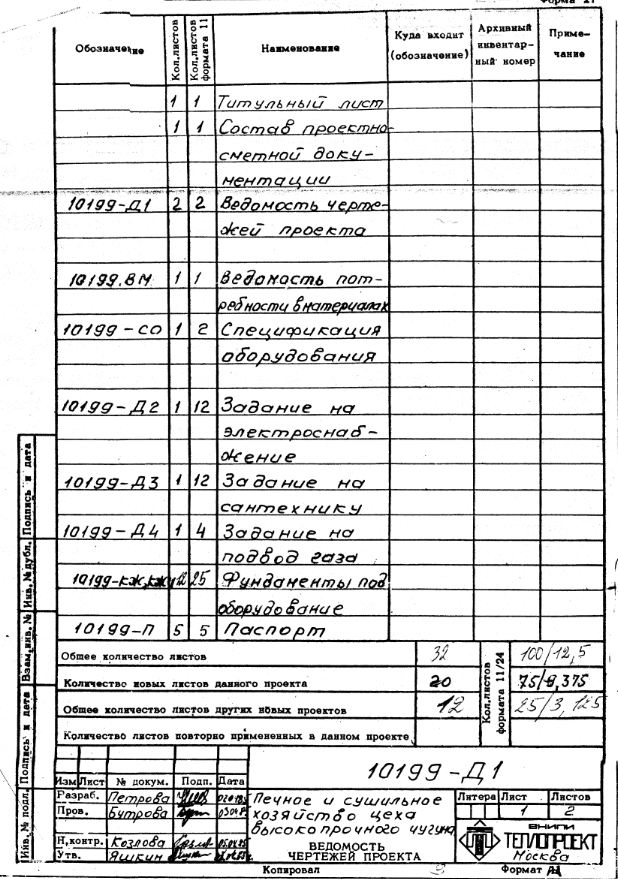 Форма 17
Обозначение Кол.листов Кол.листов формата 11 Наименование Куда входит (обозначение) Архивный инвентарный номер Примечание
1 1 Титульный лист
1 1 Состав проектно-
сметной доку-
ментации
10199-Д1 2 2 Ведомость черте-
жей проекта
10199.ВМ 1 1 Ведомость пот-
ребности в материалах
10199-СО 1 2 Спецификация
оборудования
10199-Д2 1 12 Задание на
электроснаб-
жение
10199-Д3 1 12 Задание на
сантехнику
10199-Д4 1 4 Задание на
подвод газа
10199-КЖ, 12 25 Фундаменты под
оборудование
10199-П 5 5 Паспорт
Общее количество листов 32 Кол.листов формата 11/24 100/12,5
Количество новых листов данного проекта 20 75/9,375
Общее количество листов других новых проектов 12 25/3,125
Количество листов повторно примененных в данном проекте
Инв.№ подл. Подпись и дата Взам.инв.№ Инв.№ дубл. Подпись и дата
10199-Д1
Изм Лист № докум. Подп. Дата
Разраб. Петрова
Пров. Бутрова
Н.контр. Козлова
Утв. Яшкин
Печное и сушильное
хозяйство цеха
высокопрочного чугуна
ВЕДОМОСТЬ
ЧЕРТЕЖЕЙ ПРОЕКТА
Литера Лист Листов
1 2
ВНИПИ
ТЕПЛОПРОЕКТ
Москва
Копировал 3 Формат